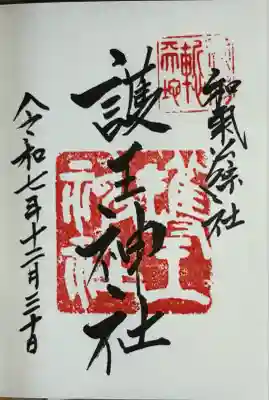 和氣公綜社
護王神社
護王
神社
令和七年十二月三十日